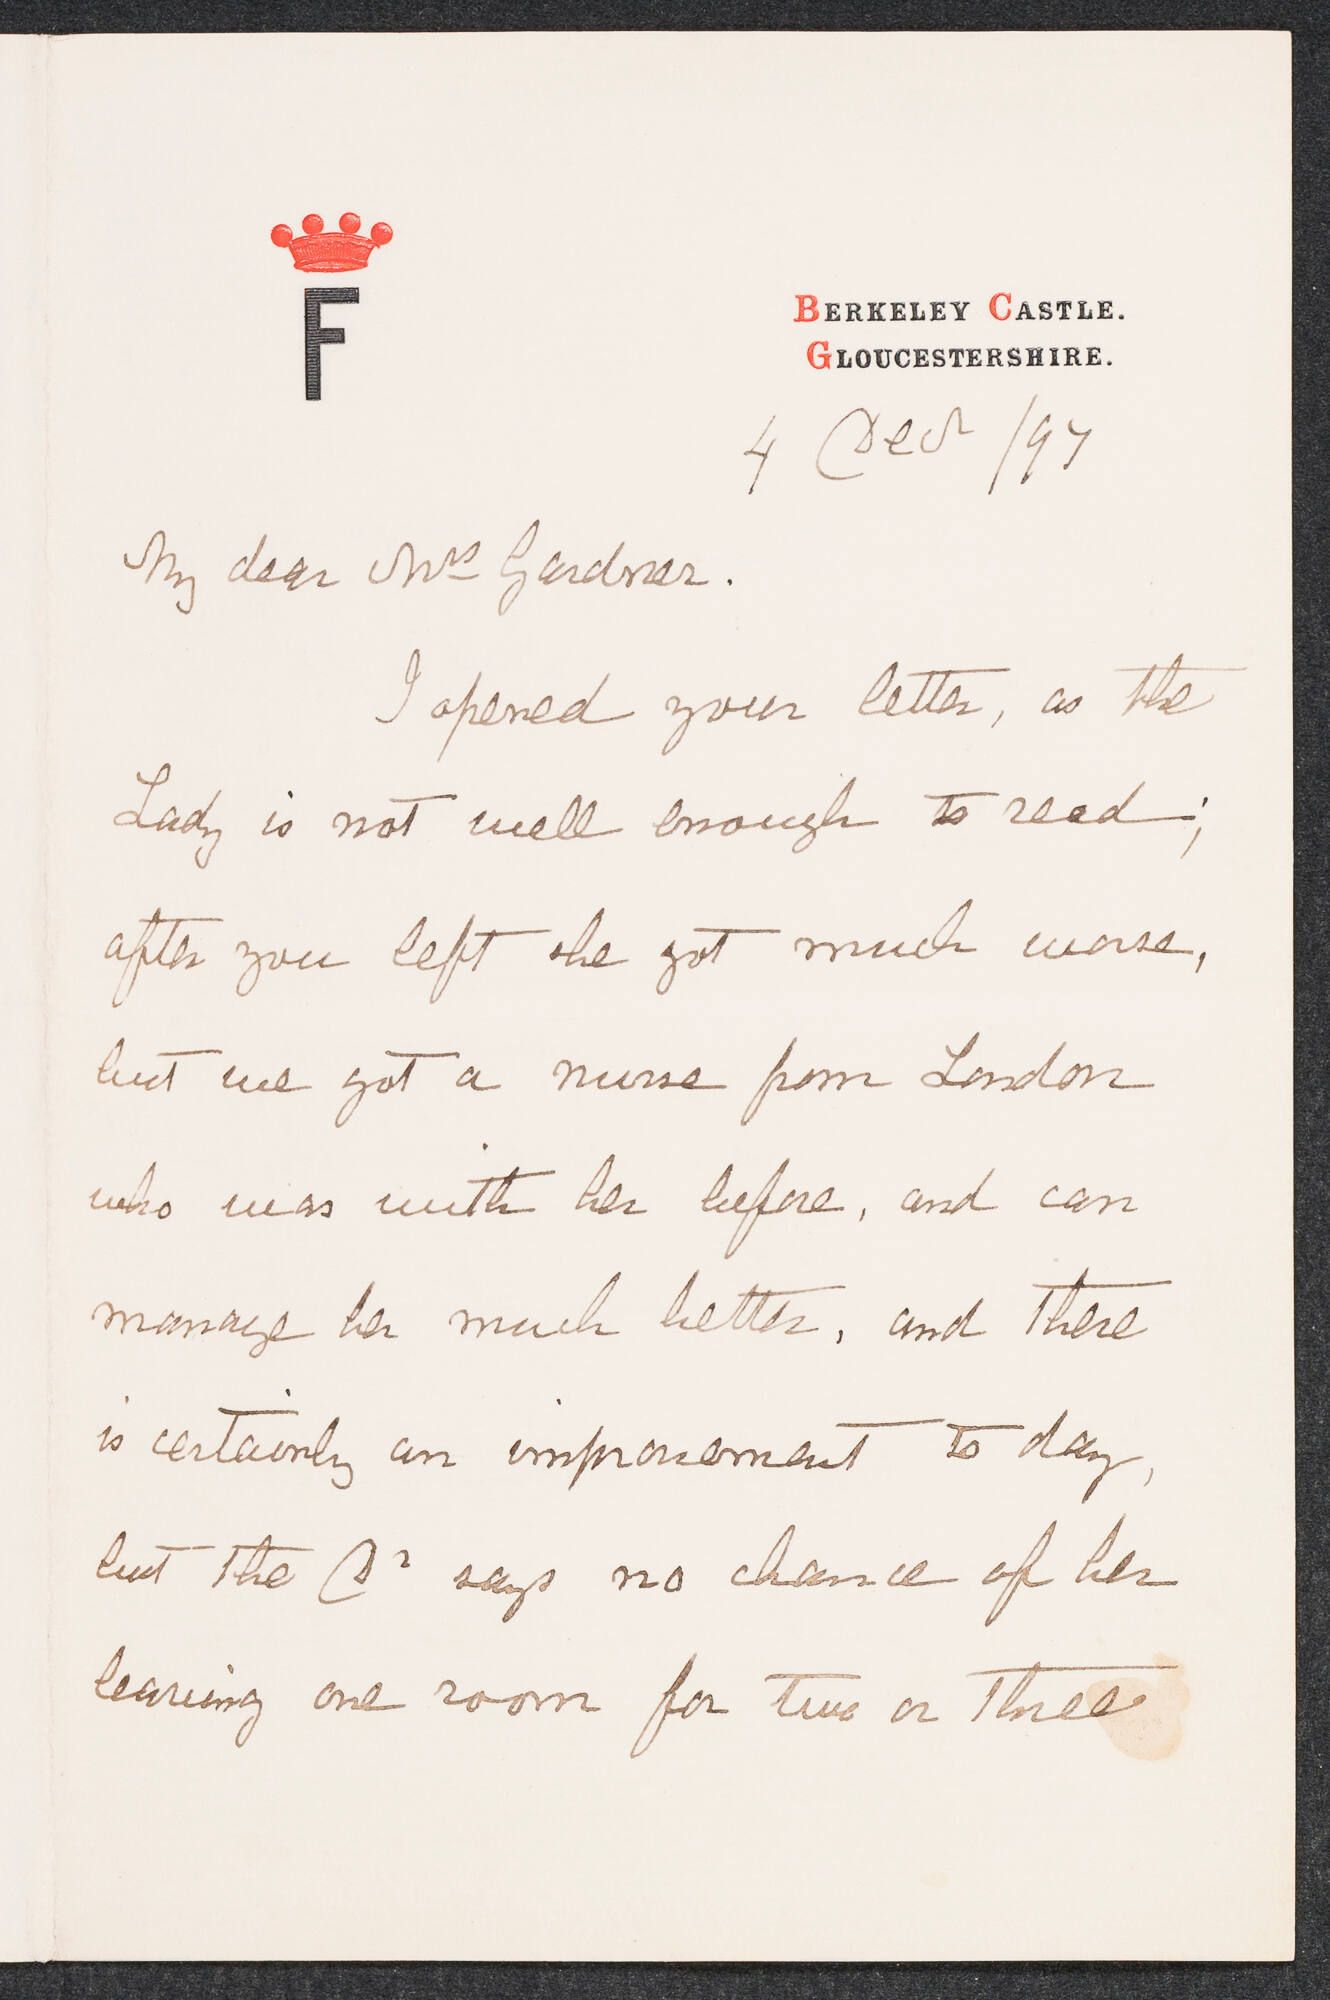 F
BERKELEY CASTLE.
GLOUCESTERSHIRE.
4 Decr /97
My dear Mrs Gardner.
I opened your letter, as the
Lady is not well enough to read;
after you left she got much worse,
but we got a nurse from London
who was with her before, and can
manage her much better, and there
is certainly an improvement to day,
but the Dr says no chance of her
leaving one room for two or three